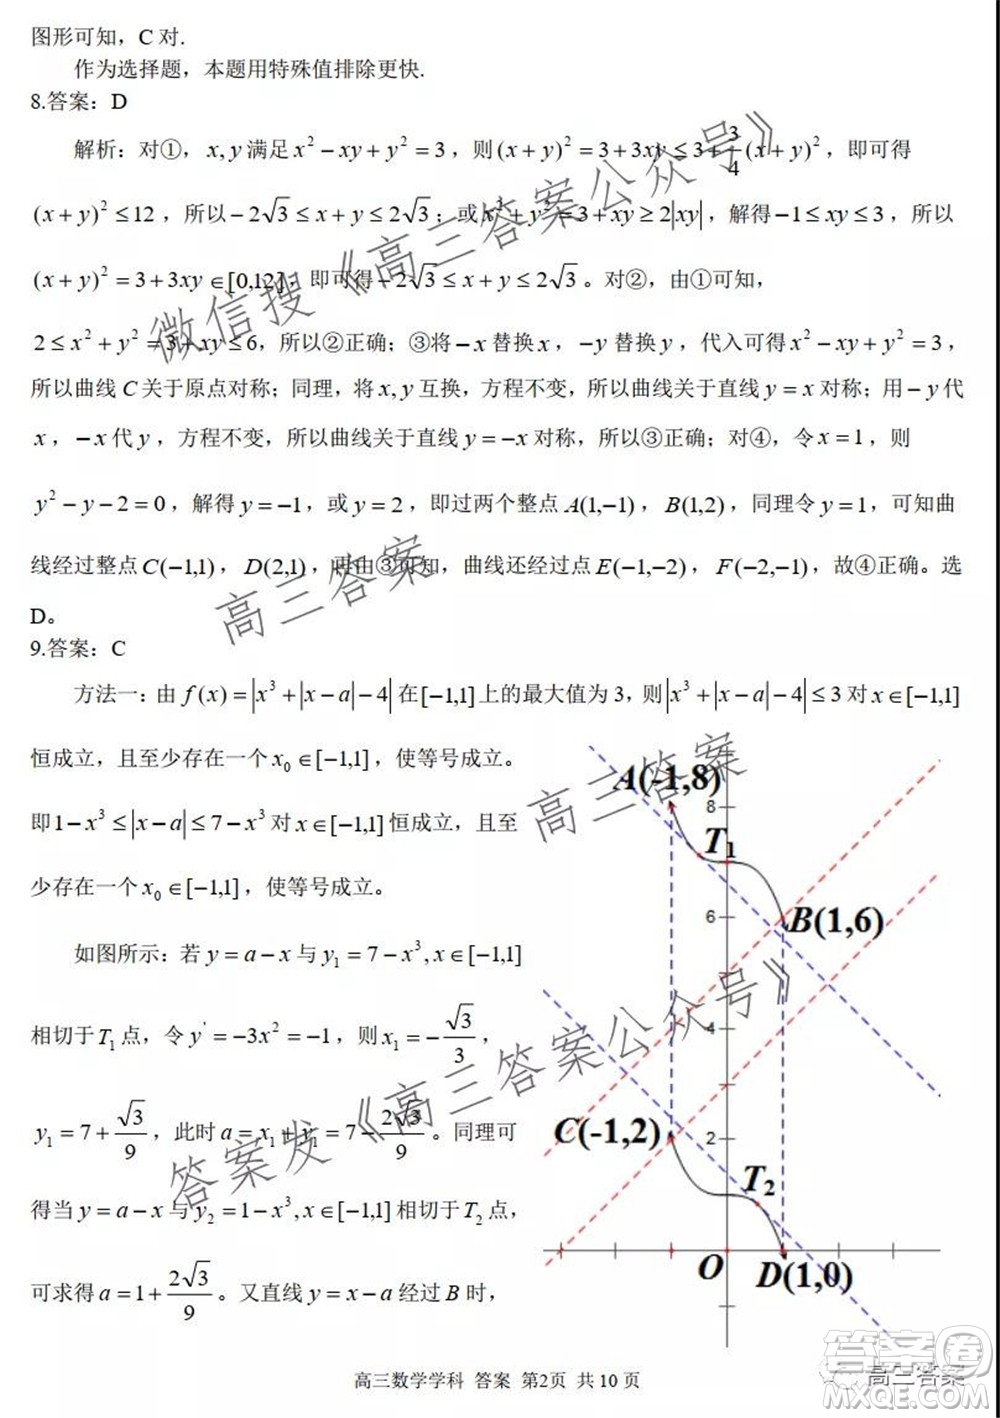 图形可知，C 对.
作为选择题，本题用特殊值排除更快.
8.答案：D
解析：对①，x, y 满足 x² − xy + y² = 3，则 (x + y)² = 3 + 3xy ≤ 3 + 3/4 (x + y)²，即可得
(x + y)² ≤ 12，所以 −2√3 ≤ x + y ≤ 2√3；或 x² + y² = 3 + xy ≥ 2|xy|，解得 −1 ≤ xy ≤ 3，所以
(x + y)² = 3 + 3xy ∈ [0,12]，即可得 −2√3 ≤ x + y ≤ 2√3。对②，由①可知，
2 ≤ x² + y² = 3 + xy ≤ 6，所以②正确；③将 −x 替换 x，−y 替换 y，代入可得 x² − xy + y² = 3，
所以曲线 C 关于原点对称；同理，将 x, y 互换，方程不变，所以曲线关于直线 y = x 对称；用 − y 代
x，−x 代 y，方程不变，所以曲线关于直线 y = −x 对称，所以③正确；对④，令 x = 1，则
y² − y − 2 = 0，解得 y = −1，或 y = 2，即过两个整点 A(1,−1)，B(1,2)，同理令 y = 1，可知曲
线经过整点 C(−1,1)，D(2,1)，再由③可知，曲线还经过点 E(−1,−2)，F(−2,−1)，故④正确。选
D。
9.答案：C
方法一：由 f(x) = |x³ + |x − a| − 4| 在 [−1,1] 上的最大值为 3，则 |x³ + |x − a| − 4| ≤ 3 对 x ∈ [−1,1]
恒成立，且至少存在一个 x₀ ∈ [−1,1]，使等号成立。
即 1 − x³ ≤ |x − a| ≤ 7 − x³ 对 x ∈ [−1,1] 恒成立，且至
少存在一个 x₀ ∈ [−1,1]，使等号成立。
如图所示：若 y = a − x 与 y₁ = 7 − x³, x ∈ [−1,1]
相切于 T₁ 点，令 y' = −3x² = −1，则 x₁ = −√3/3，
y₁ = 7 + √3/9，此时 a = x₁ + y₁ = 7 − 2√3/9。同理可
得当 y = a − x 与 y₂ = 1 − x³, x ∈ [−1,1] 相切于 T₂ 点，
可求得 a = 1 + 2√3/9。又直线 y = x − a 经过 B 时，
A(-1,8)
8
T₁
6
B(1,6)
4
C(-1,2)
2
T₂
O
D(1,0)
高三数学学科 答案 第2页 共10页
微信搜《高三答案公众号》
高三答案
高三答案
答案发《高三答案公众号》
答案卷
高三答案
MXQE.COM